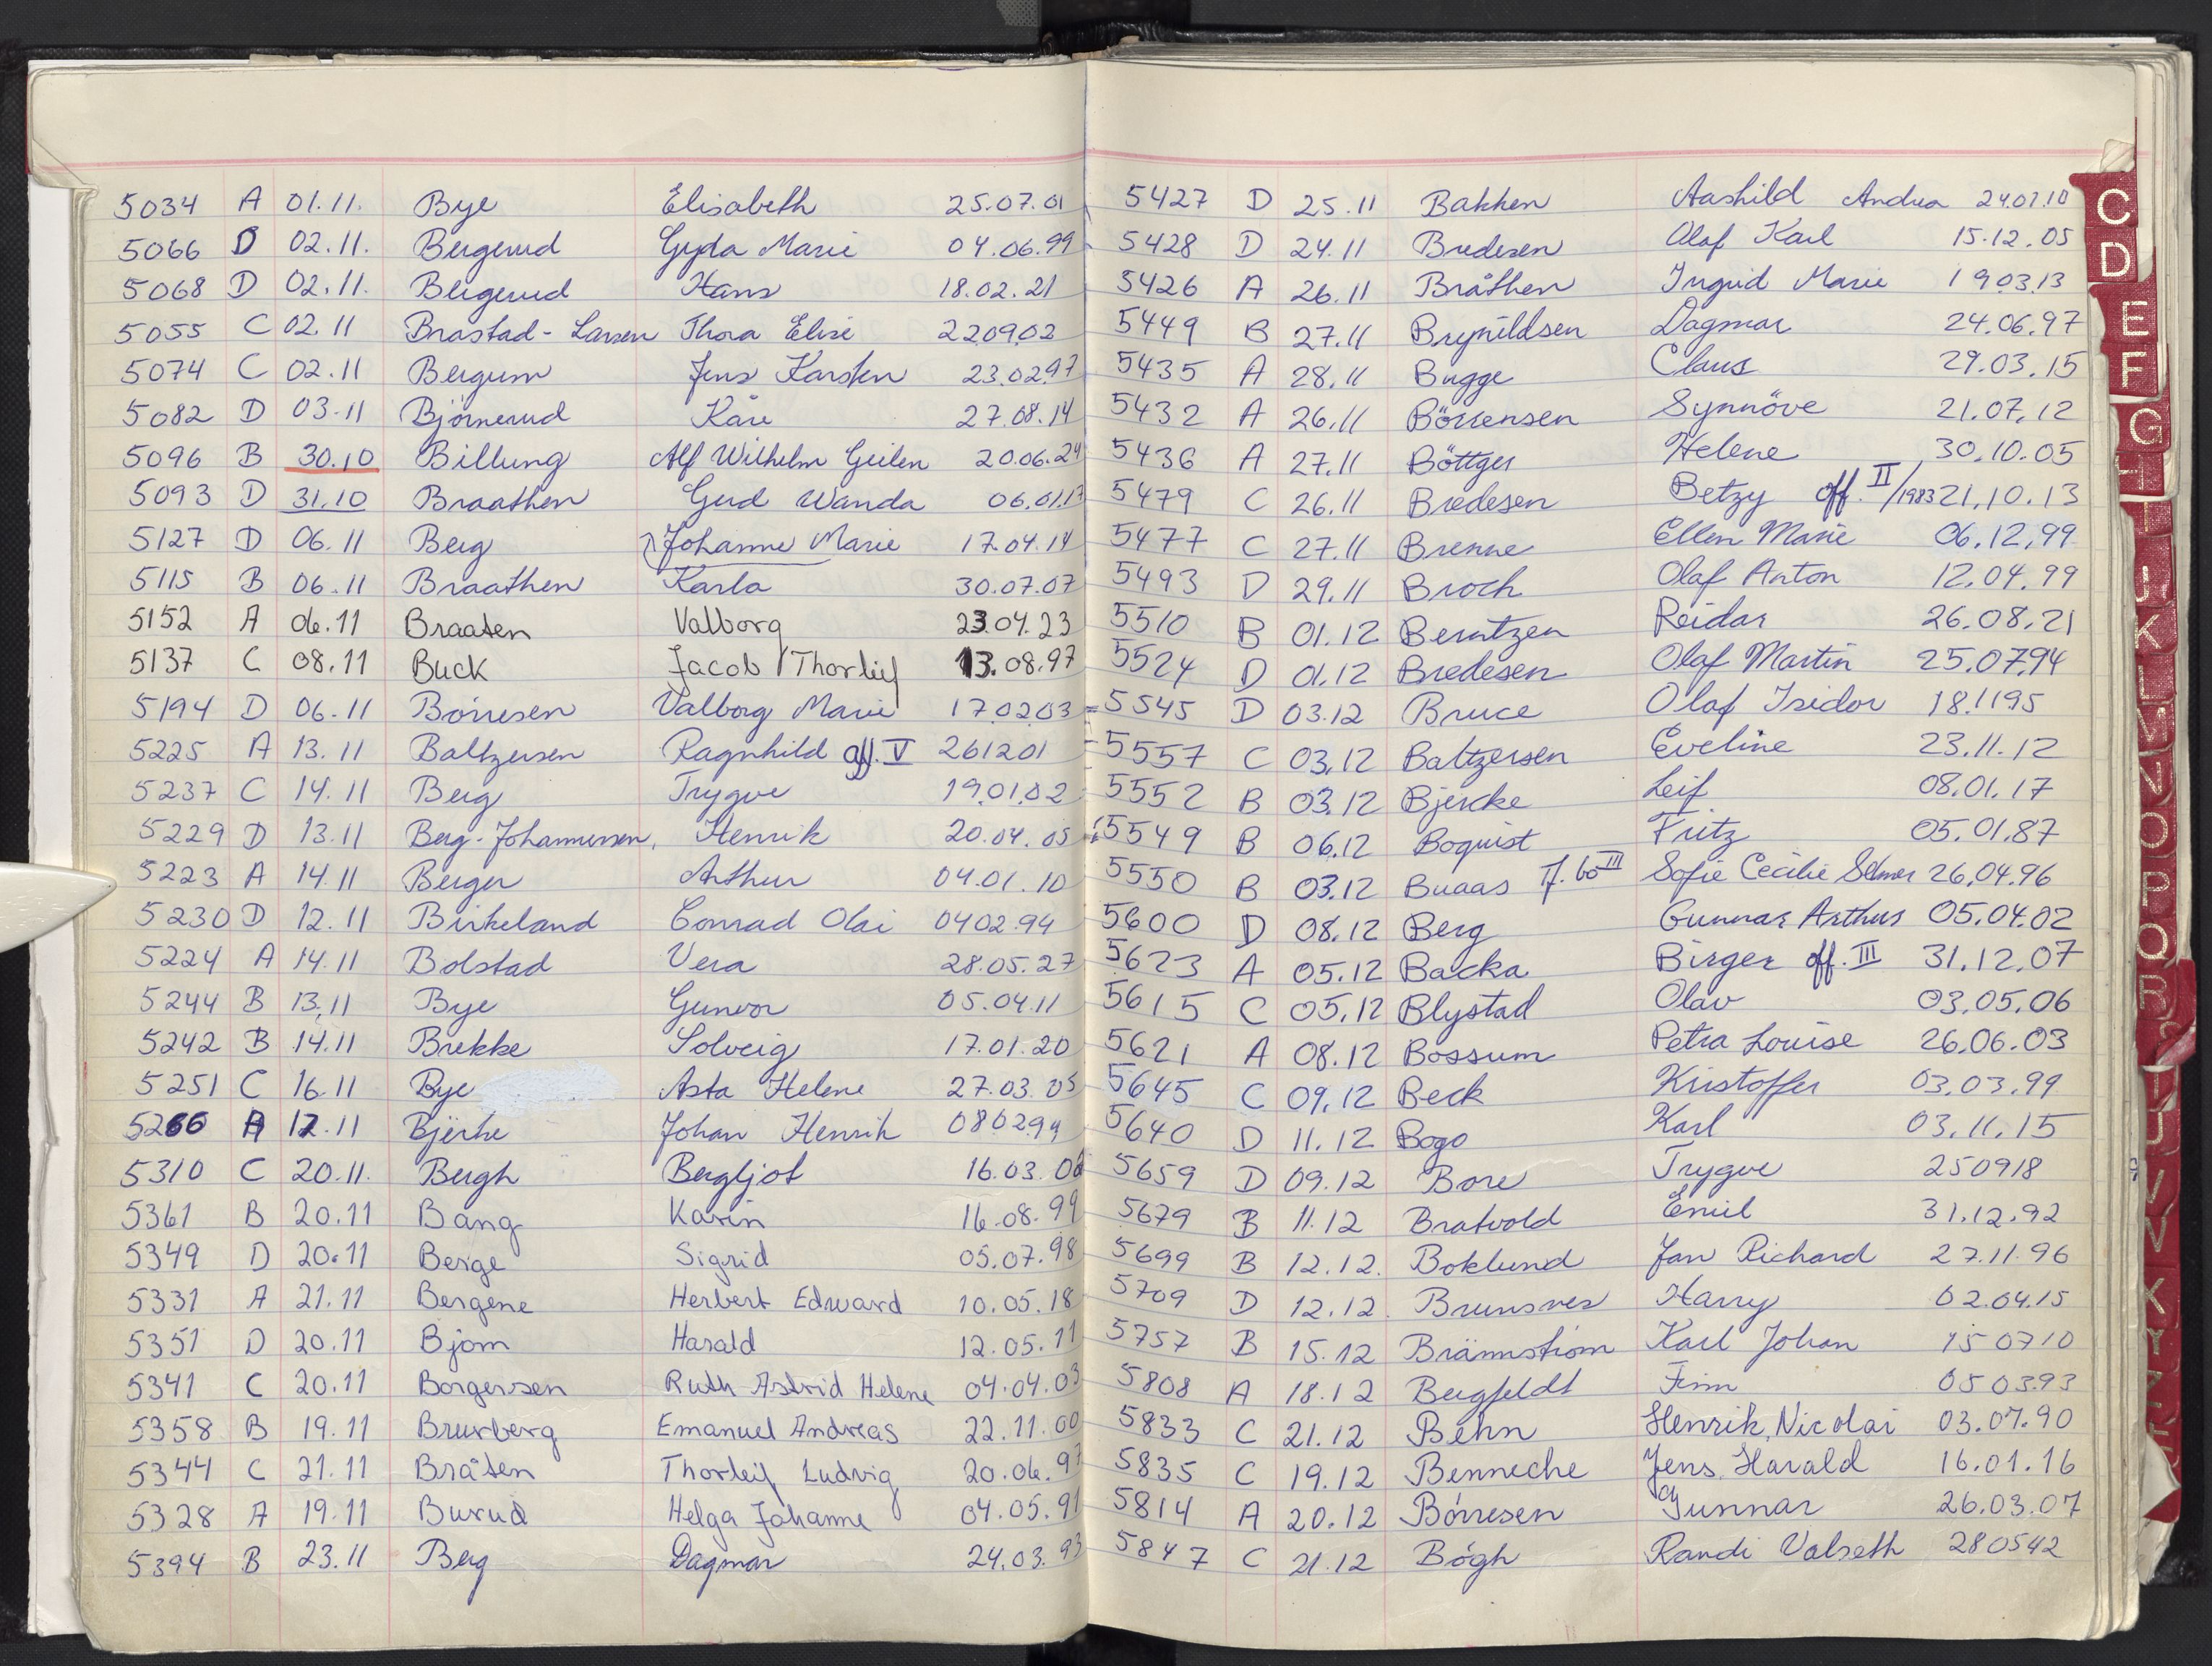 5034 A 01.11. Bye Elisabeth 25.07.01
5066 D 02.11. Bergerud Gyda Marie 04.06.99
5068 D 02.11. Bergerud Hans 18.02.21
5055 C 02.11 Brastad-Larsen Thora Elise 220902
5074 C 02.11 Bergum Jens Karsten 23.0297
5082 D 03.11 Bjørnerud Kåre 27.08.14
5096 B 30.10 Billung Alf Wilhelm Geilen 20.06.24
5093 D 31.10 Braathen Gerd Wanda 06.01.17
5127 D 06.11 Berg Johanne Marie 17.04.14
5115 B 06.11 Braathen Karla 30.07.07
5152 A 06.11 Braaten Valborg 23.04.23
5137 C 08.11 Buck Jacob Thorleif 13.08.97
5194 D 06.11 Børresen Valborg Marie 17.02.03
5225 A 13.11 Baltzersen Ragnhild off. V 261201
5237 C 14.11 Berg Trygve 19.01.02
5229 D 13.11 Berg-Johannessen, Henrik 20.04.05
5223 A 14.11 Berger Arthur 04.01.10
5230 D 12.11 Birkeland Conrad Olai 0402.94
5224 A 14.11 Bolstad Vera 28.05.27
5244 B 13.11 Bye Gunvor 05.04.11
5242 B 14.11 Brekke Solveig 17.01.20
5251 C 16.11 Bye Asta Helene 27.03.05
5266 A 12.11 Bjerke Johan Henrik 080299
5310 C 20.11. Bergh Bergljot 16.03.06
5361 B 20.11 Bang Karin 16.08.99
5349 D 20.11 Berge Sigrid 05.07.98
5331 A 21.11 Bergene Herbert Edward 10.05.18
5351 D 20.11 Bjørn Harald 12.05.11
5341 C 20.11 Borgersen Ruth Astrid Helene 04.04.03
5358 B 19.11 Brurberg Emanuel Andreas 22.11.00
5344 C 21.11 Bråten Thorleif Ludvig 20.06.97
5328 A 19.11 Burud Helga Johanne 04.05.91
5394 B 23.11 Berg Dagmar 24.03.93
5427 D 25.11 Bakken Aashild Andrea 24.07.10
5428 D 24.11 Bredesen Olaf Karl 15.12.05
5426 A 26.11 Bråthen Ingrid Marie 19.03.13
5449 B 27.11 Brynildsen Dagmar 24.06.97
5435 A 28.11 Bugge Claus 29.03.15
5432 A 26.11 Börrensen Synnöve 21.07.12
5436 A 27.11 Böttger Helene 30.10.05
5479 C 26.11 Bredesen Betzy off. II/1983 21.10.13
5477 C 27.11 Brenne Ellen Marie 06.12.99
5493 D 29.11 Broch Olaf Anton 12.04.99
5510 B 01.12 Berntzen Reidar 26.08.21
5524 D 01.12 Bredesen Olaf Martin 25.07.94
5545 D 03.12 Bruce Olaf Isidor 18.1195
5557 C 03.12 Baltzersen Eveline 23.11.12
5552 B 03.12 Bjercke Leif 08.01.17
5549 B 06.12 Boquist Fritz 05.01.87
5550 B 03.12 Buaas f. bo III Sofie Cecilie Selmer 26.04.96
5600 D 08.12 Berg Gunnar Arthur 05.04.02
5623 A 05.12 Backa Birger off. III 31.12.07
5615 C 05.12 Blystad Olav 03.05.06
5621 A 08.12 Bossum Petra Louise 26.06.03
5645 C 09.12 Beck Kristoffer 03.03.99
5640 D 11.12 Bogo Karl 03.11.15
5659 D 09.12 Bore Trygve 250918
5679 B 11.12 Bratvold Emil 31.12.92
5699 B 12.12. Boklund Jan Richard 27.11.96
5709 D 12.12. Brunsnes Harry 02.04.15
5757 B 15.12 Brännström Karl Johan 15 0710
5808 A 18.12 Bergfeldt Finn 05 0393
5833 C 21.12 Behn Henrik Nicolai 03.07.90
5835 C 19.12 Benneche Jens Harald 16.01.16
5814 A 20.12 Børresen Gunnar 26.03.07
5847 C 21.12 Bøgh Randi Valseth 280542
C
D
E
F
G
H
I
J
K
L
M
N
O
P
Q
R
T
U
V
X
Y